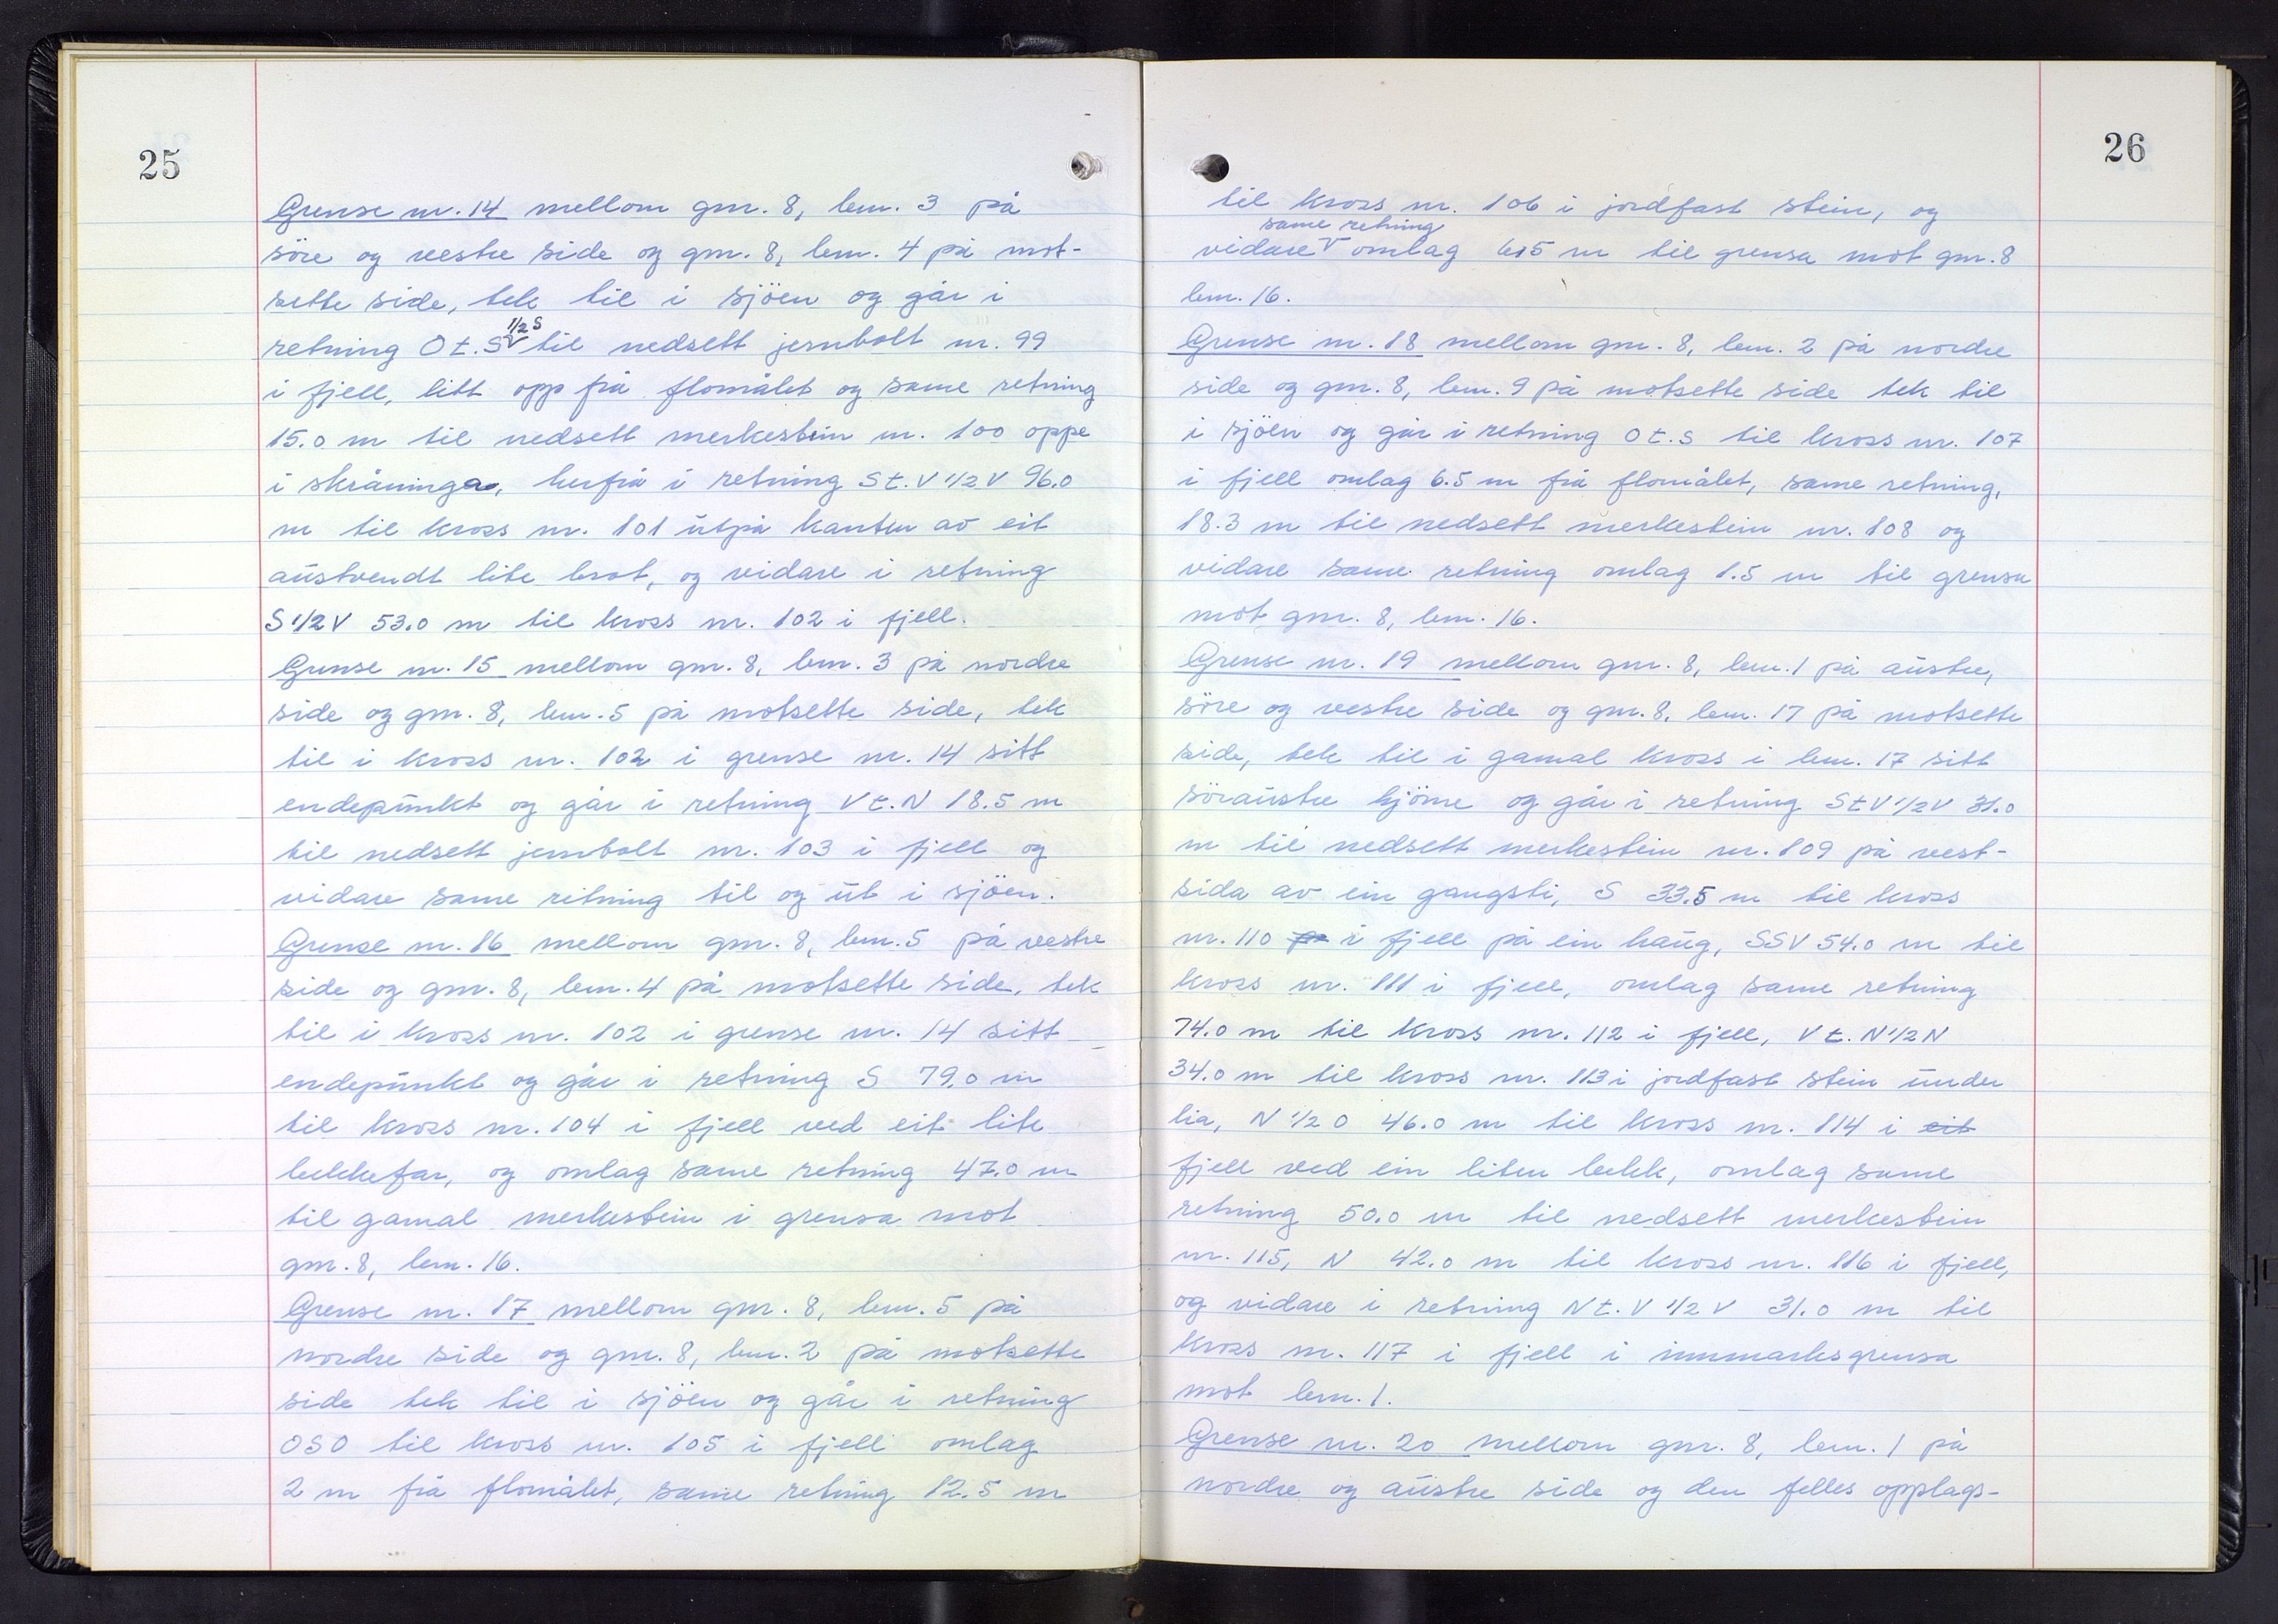 25
Grense nr. 14 mellom gnr. 8, bnr. 3 på
söre og vestre side og gnr. 8, bnr. 4 på mot-
sette side, tek til i sjöen og går i
1/2 S
retning O t. S V til nedsett jernbolt nr. 99
i fjell, litt opp frå flomålet og same retning
15.0 m til nedsett merkestein nr. 100 oppe
i skråninga, herfrå i retning S t. V 1/2 V 96.0
m til kross nr. 101 utpå kanten av eit
austvendt lite brot, og vidare i retning
S 1/2 V 53.0 m til kross nr. 102 i fjell.
Grense nr. 15 mellom gnr. 8, bnr. 3 på nordre
side og gnr. 8, bnr. 5 på motsette side, tek
til i kross nr. 102 i grense nr. 14 sitt
endepunkt og går i retning V t. N 18.5 m
til nedsett jernbolt nr. 103 i fjell og
vidare same retning til og ut i sjöen.
Grense nr. 16 mellom gnr. 8, bnr. 5 på vestre
side og gnr. 8, bnr. 4 på motsette side, tek
til i kross nr. 102 i grense nr. 14 sitt
endepunkt og går i retning S 79.0 m
til kross nr. 104 i fjell ved eit lite
bekkefar, og omlag same retning 47.0 m
til gamal merkestein i grensa mot
gnr. 8, bnr. 16.
Grense nr. 17 mellom gnr. 8, bnr. 5 på
nordre side og gnr. 8, bnr. 2 på motsette
side tek til i sjöen og går i retning
OSO til kross nr. 105 i fjell omlag
2 m frå flomålet, same retning 12.5 m
26
til kross nr. 106 i jordfast stein, og
same retning
vidare V omlag 615 m til grensa mot gnr. 8
bnr. 16.
Grense nr. 18 mellom gnr. 8, bnr. 2 på nordre
side og gnr. 8, bnr. 9 på motsette side tek til
i sjöen og går i retning O t. S til kross nr. 107
i fjell omlag 6.5 m frå flomålet, same retning,
18.3 m til nedsett merkestein nr. 108 og
vidare same retning omlag 1.5 m til grensa
mot gnr. 8, bnr. 16.
Grense nr. 19 mellom gnr. 8, bnr. 1 på austre,
söre og vestre side og gnr. 8, bnr. 17 på motsette
side, tek til i gamal kross i bnr. 17 sitt
söraustre hjörne og går i retning S t V 1/2 V 31.0
m til nedsett merkestein nr. 109 på vest-
sida av ein gangsti, S 33.5 m til kross
nr. 110 på i fjell på ein haug, SSV 54.0 m til
kross nr. 111 i fjell, omlag same retning
74.0 m til kross nr. 112 i fjell, V t. N 1/2 N
34.0 m til kross nr. 113 i jordfast stein under
lia, N 1/2 O 46.0 m til kross nr. 114 i eit
fjell ved ein liten bekk, omlag same
retning 50.0 m til nedsett merkestein
nr. 115, N 42.0 m til kross nr. 116 i fjell,
og vidare i retning N t. V 1/2 V 31.0 m til
kross nr. 117 i fjell i innmarksgrensa
mot bnr. 1.
Grense nr. 20 mellom gnr. 8, bnr. 1 på
nordre og austre side og den felles opplags-